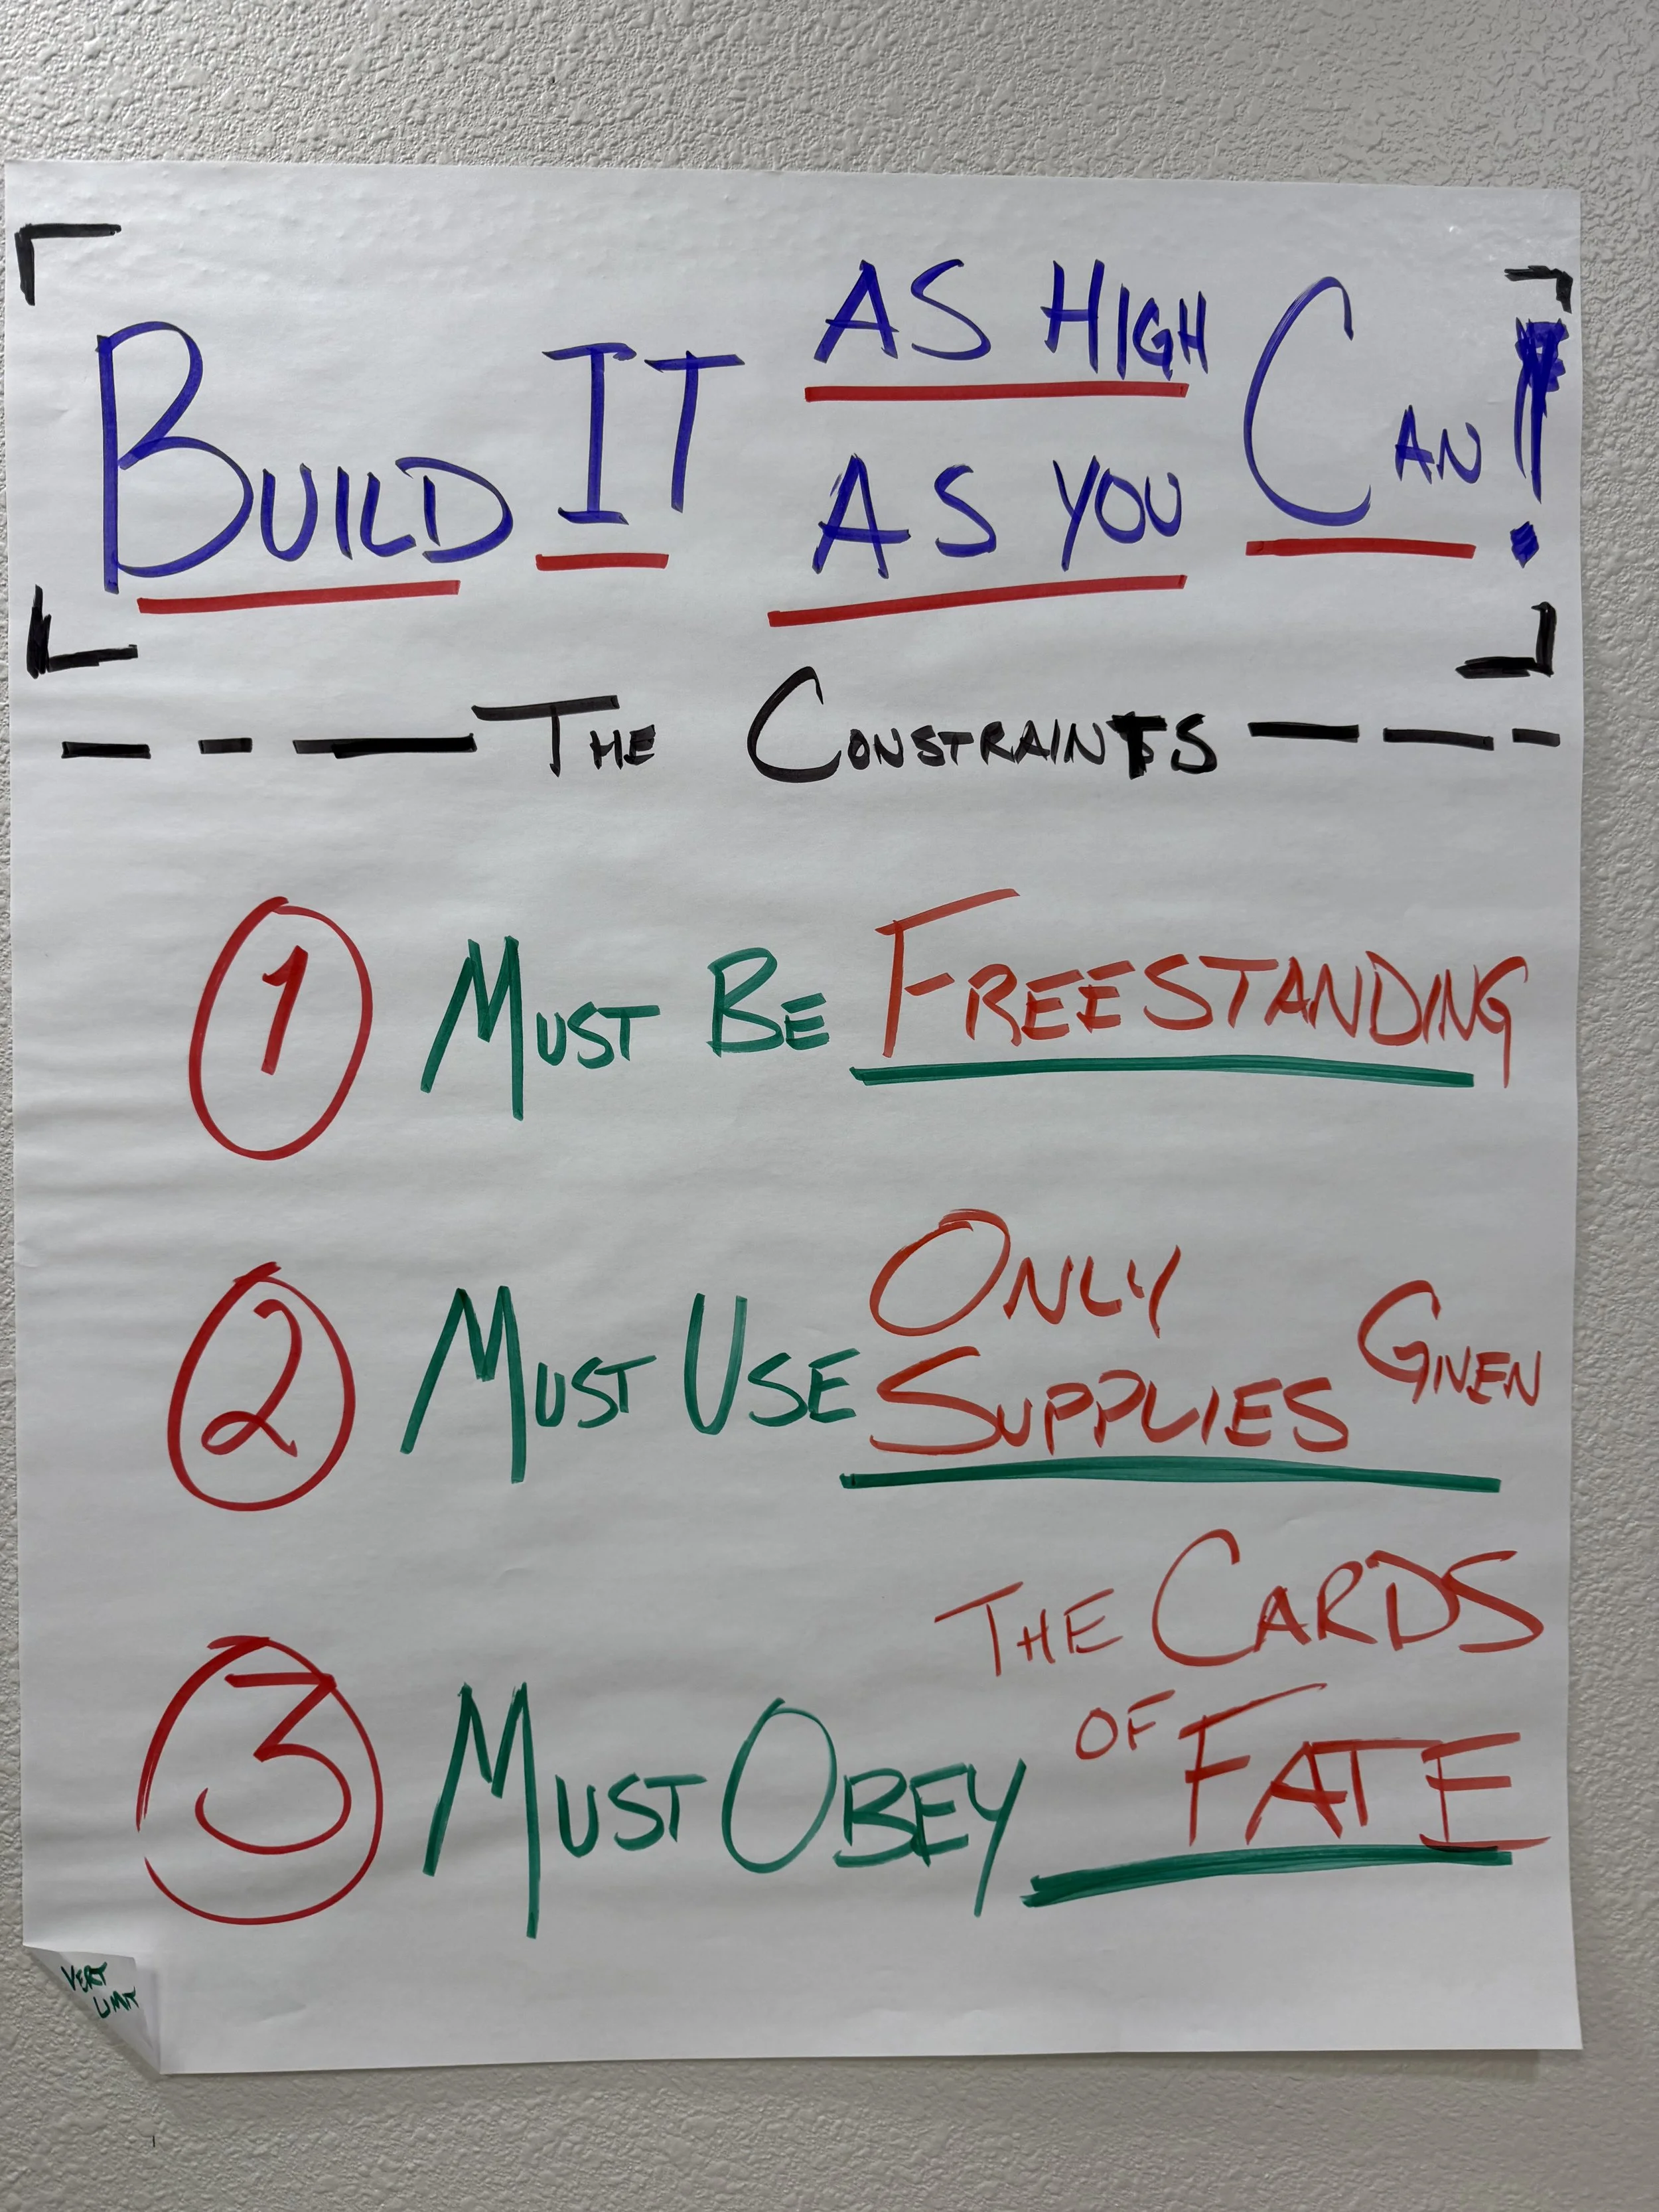 BUILD IT AS HIGH
AS YOU CAN!
THE CONSTRAINTS
1 MUST BE FREESTANDING
2 MUST USE ONLY
SUPPLIES GIVEN
3 MUST OBEY THE CARDS
OF FATE
VERT
LIMIT